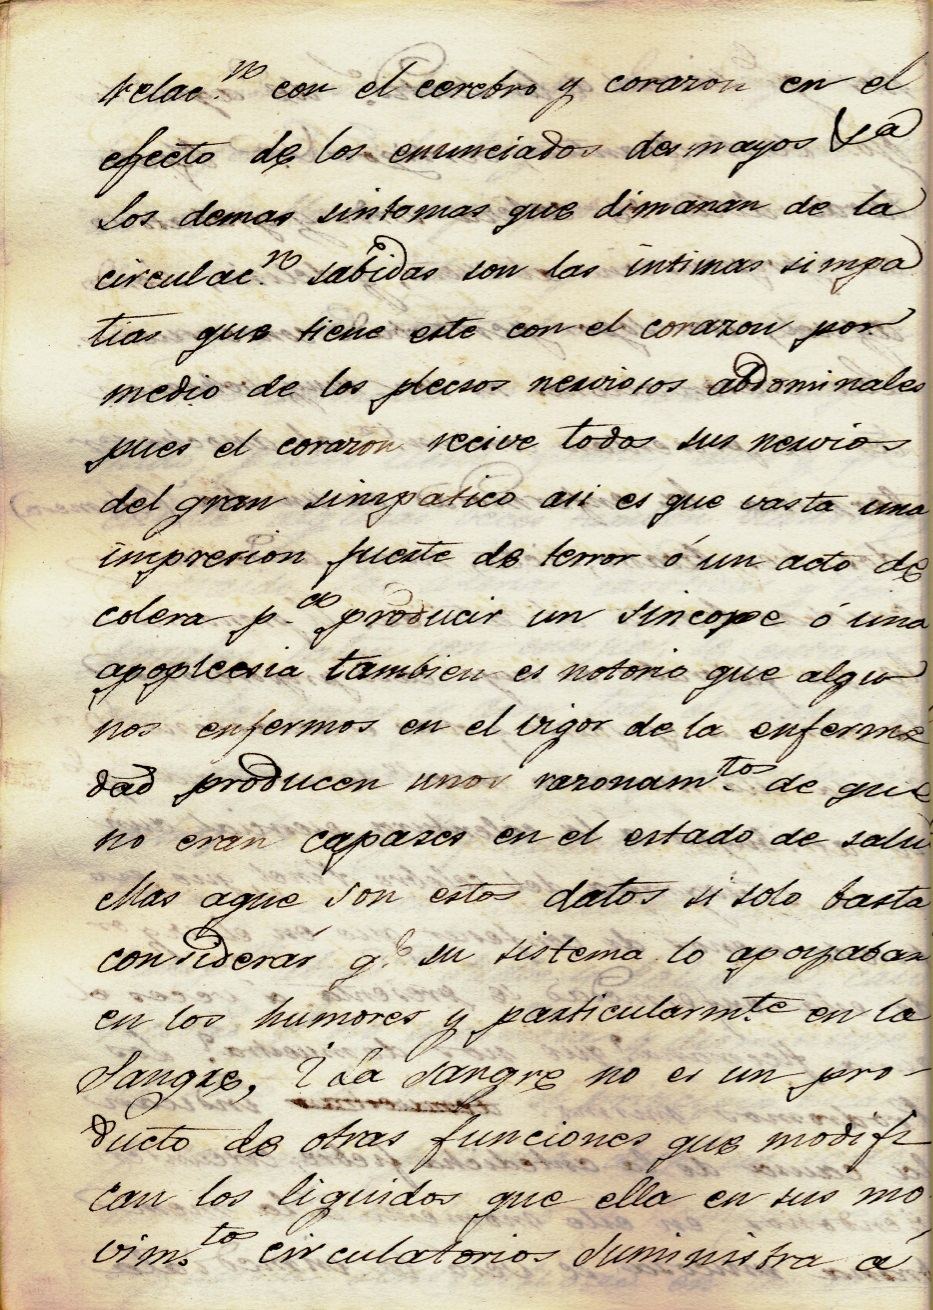 relac.n con el cerebro y corazon en el
efecto de los enunciados desmayos y a
los demas sintomas que dimanan de la
circulac.n sabidas son las intimas simpa
tias que tiene este con el corazon por
medio de los plecsos nerviosos abdominales
pues el corazon recive todos sus nervios
del gran simpatico asi es que vasta una
impresion fuerte de terror ó un acto de
colera p.a producir un sincope ó una
apoplecsia tambien es notorio que algu
nos enfermos en el vigor de la enferme
dad producen unos razonam.tos de que
no eran capazes en el estado de salu
Mas aque son estos datos si solo basta
considerar q.e su sistema lo apoyaban
en los humores y particularm.te en la
Sangre, ¿La Sangre no es un pro-
ducto de otras funciones que modifi
can los liquidos que ella en sus mo
vim.tos circulatorios suministra á